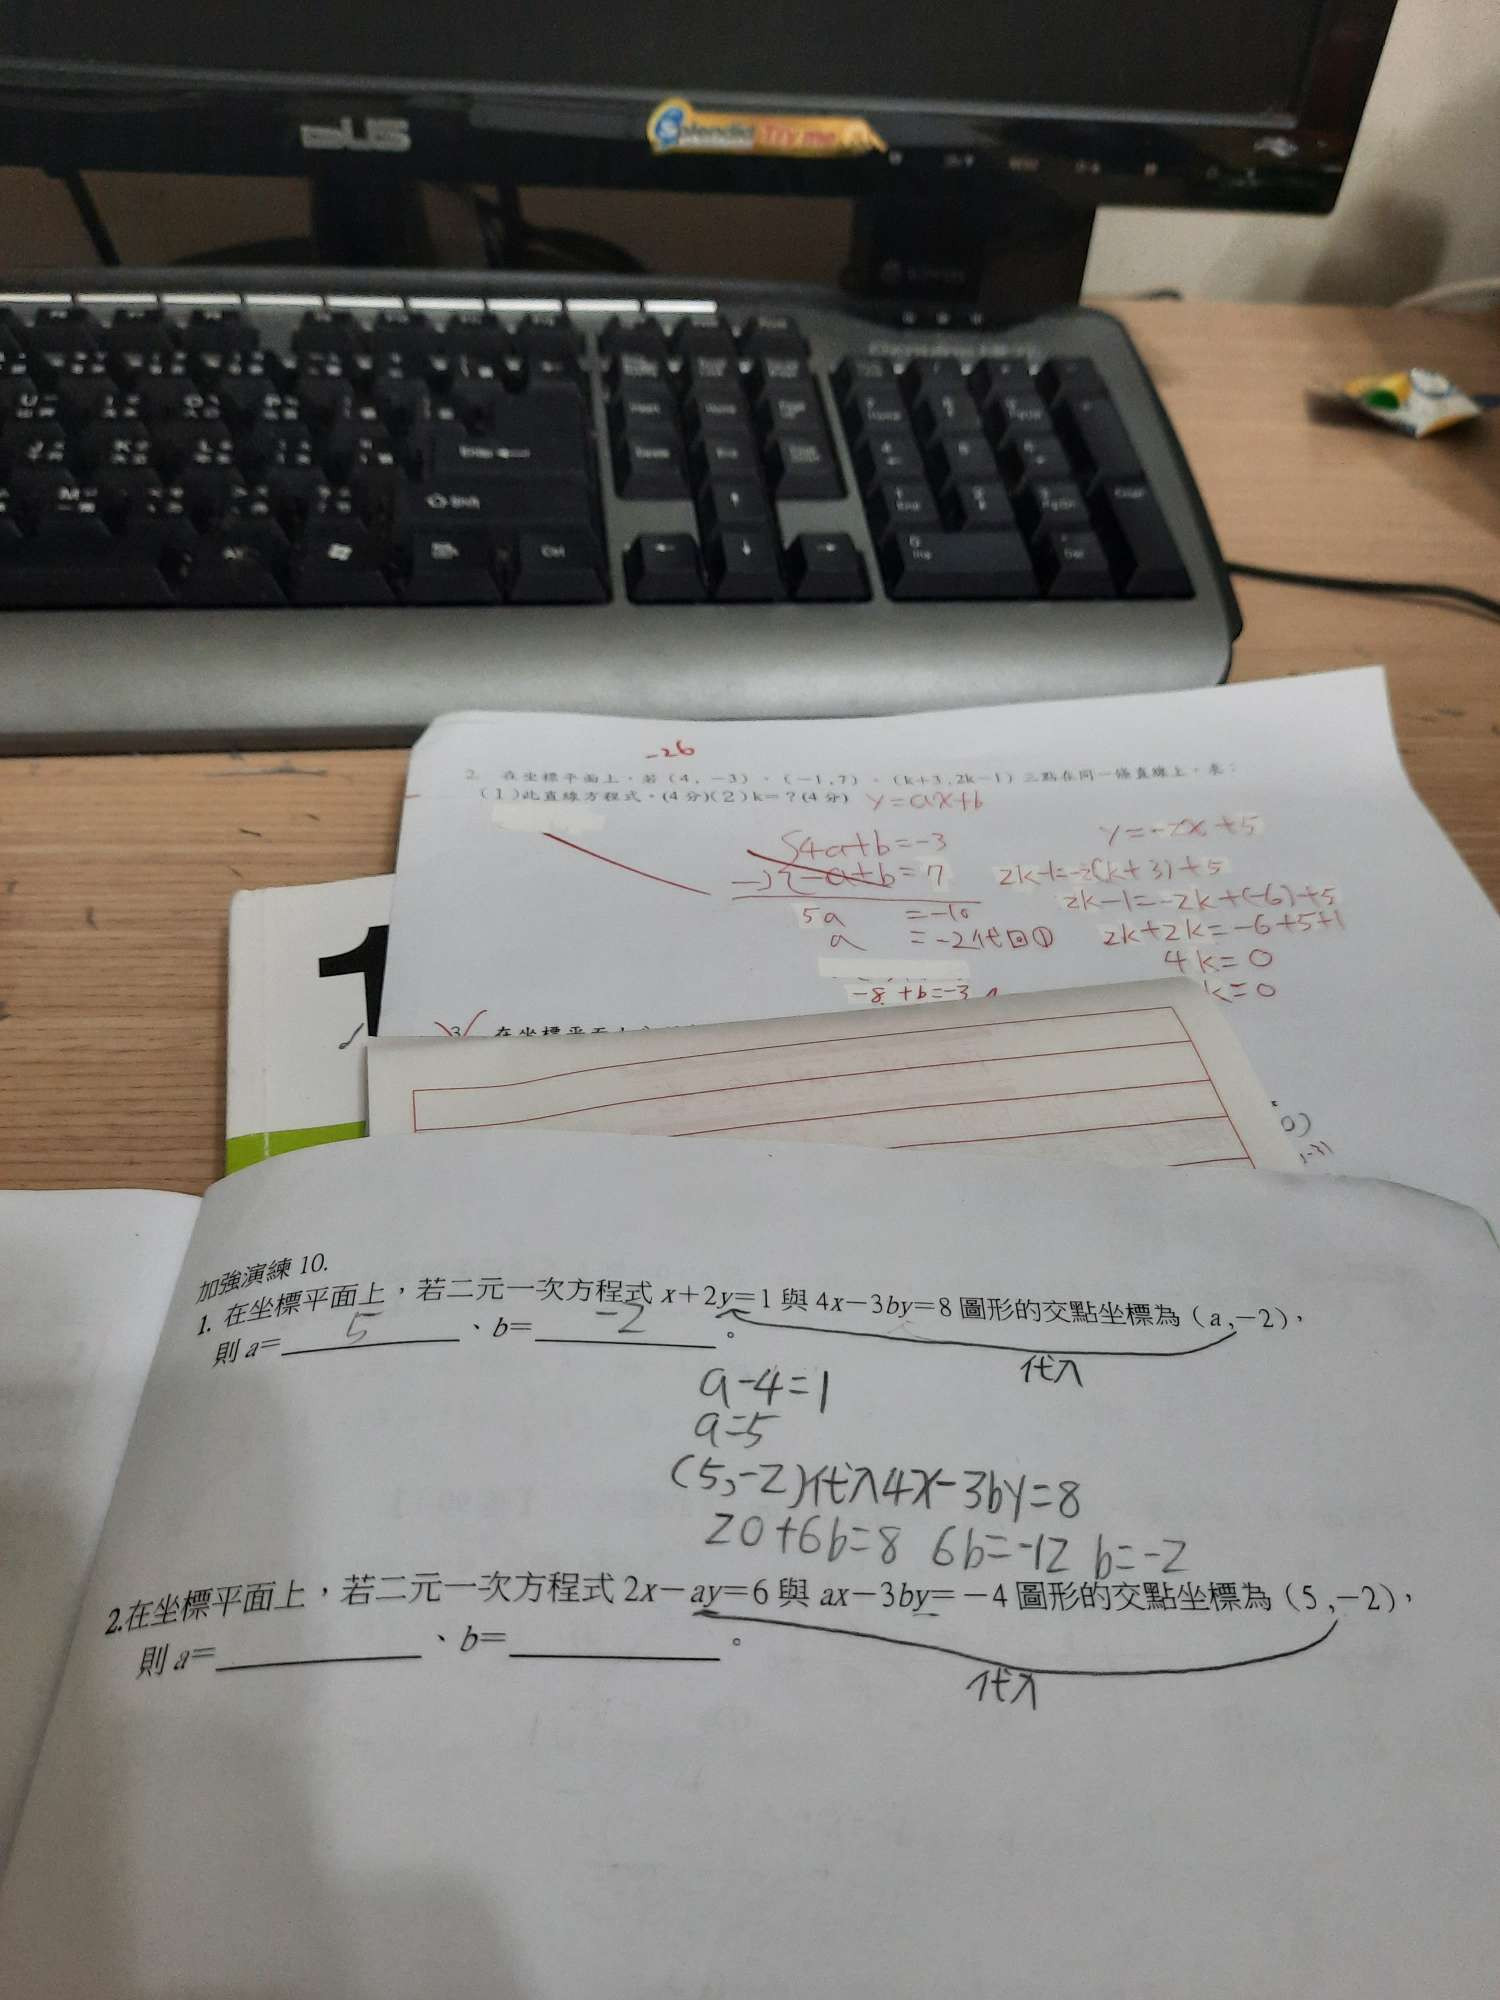 ASUS
Splendid Try me
Enter
Shift
Alt
Ctrl
Home
Delete
End
Enter
-26
2. 在坐標平面上,若(4,-3)、(-1,7)、(k+3,2k-1)三點在同一條直線上,求:
(1)此直線方程式。(4分)(2)k=?(4分) y=ax+b
4a+b=-3
-) -a+b=7
5a =-10
a =-2代回①
-8+b=-3
y=-2x+5
2k-1=-2(k+3)+5
2k-1=-2k+(-6)+5
2k+2k=-6+5+1
4k=0
k=0
3
1
加強演練 10.
1. 在坐標平面上,若二元一次方程式 x+2y=1 與 4x-3by=8 圖形的交點坐標為(a,-2),
則 a= 5 、b= -2 。
代入
a-4=1
a=5
(5,-2)代入4x-3by=8
20+6b=8 6b=-12 b=-2
2.在坐標平面上,若二元一次方程式 2x-ay=6 與 ax-3by=-4 圖形的交點坐標為(5,-2),
則 a= 、b= 。
代入